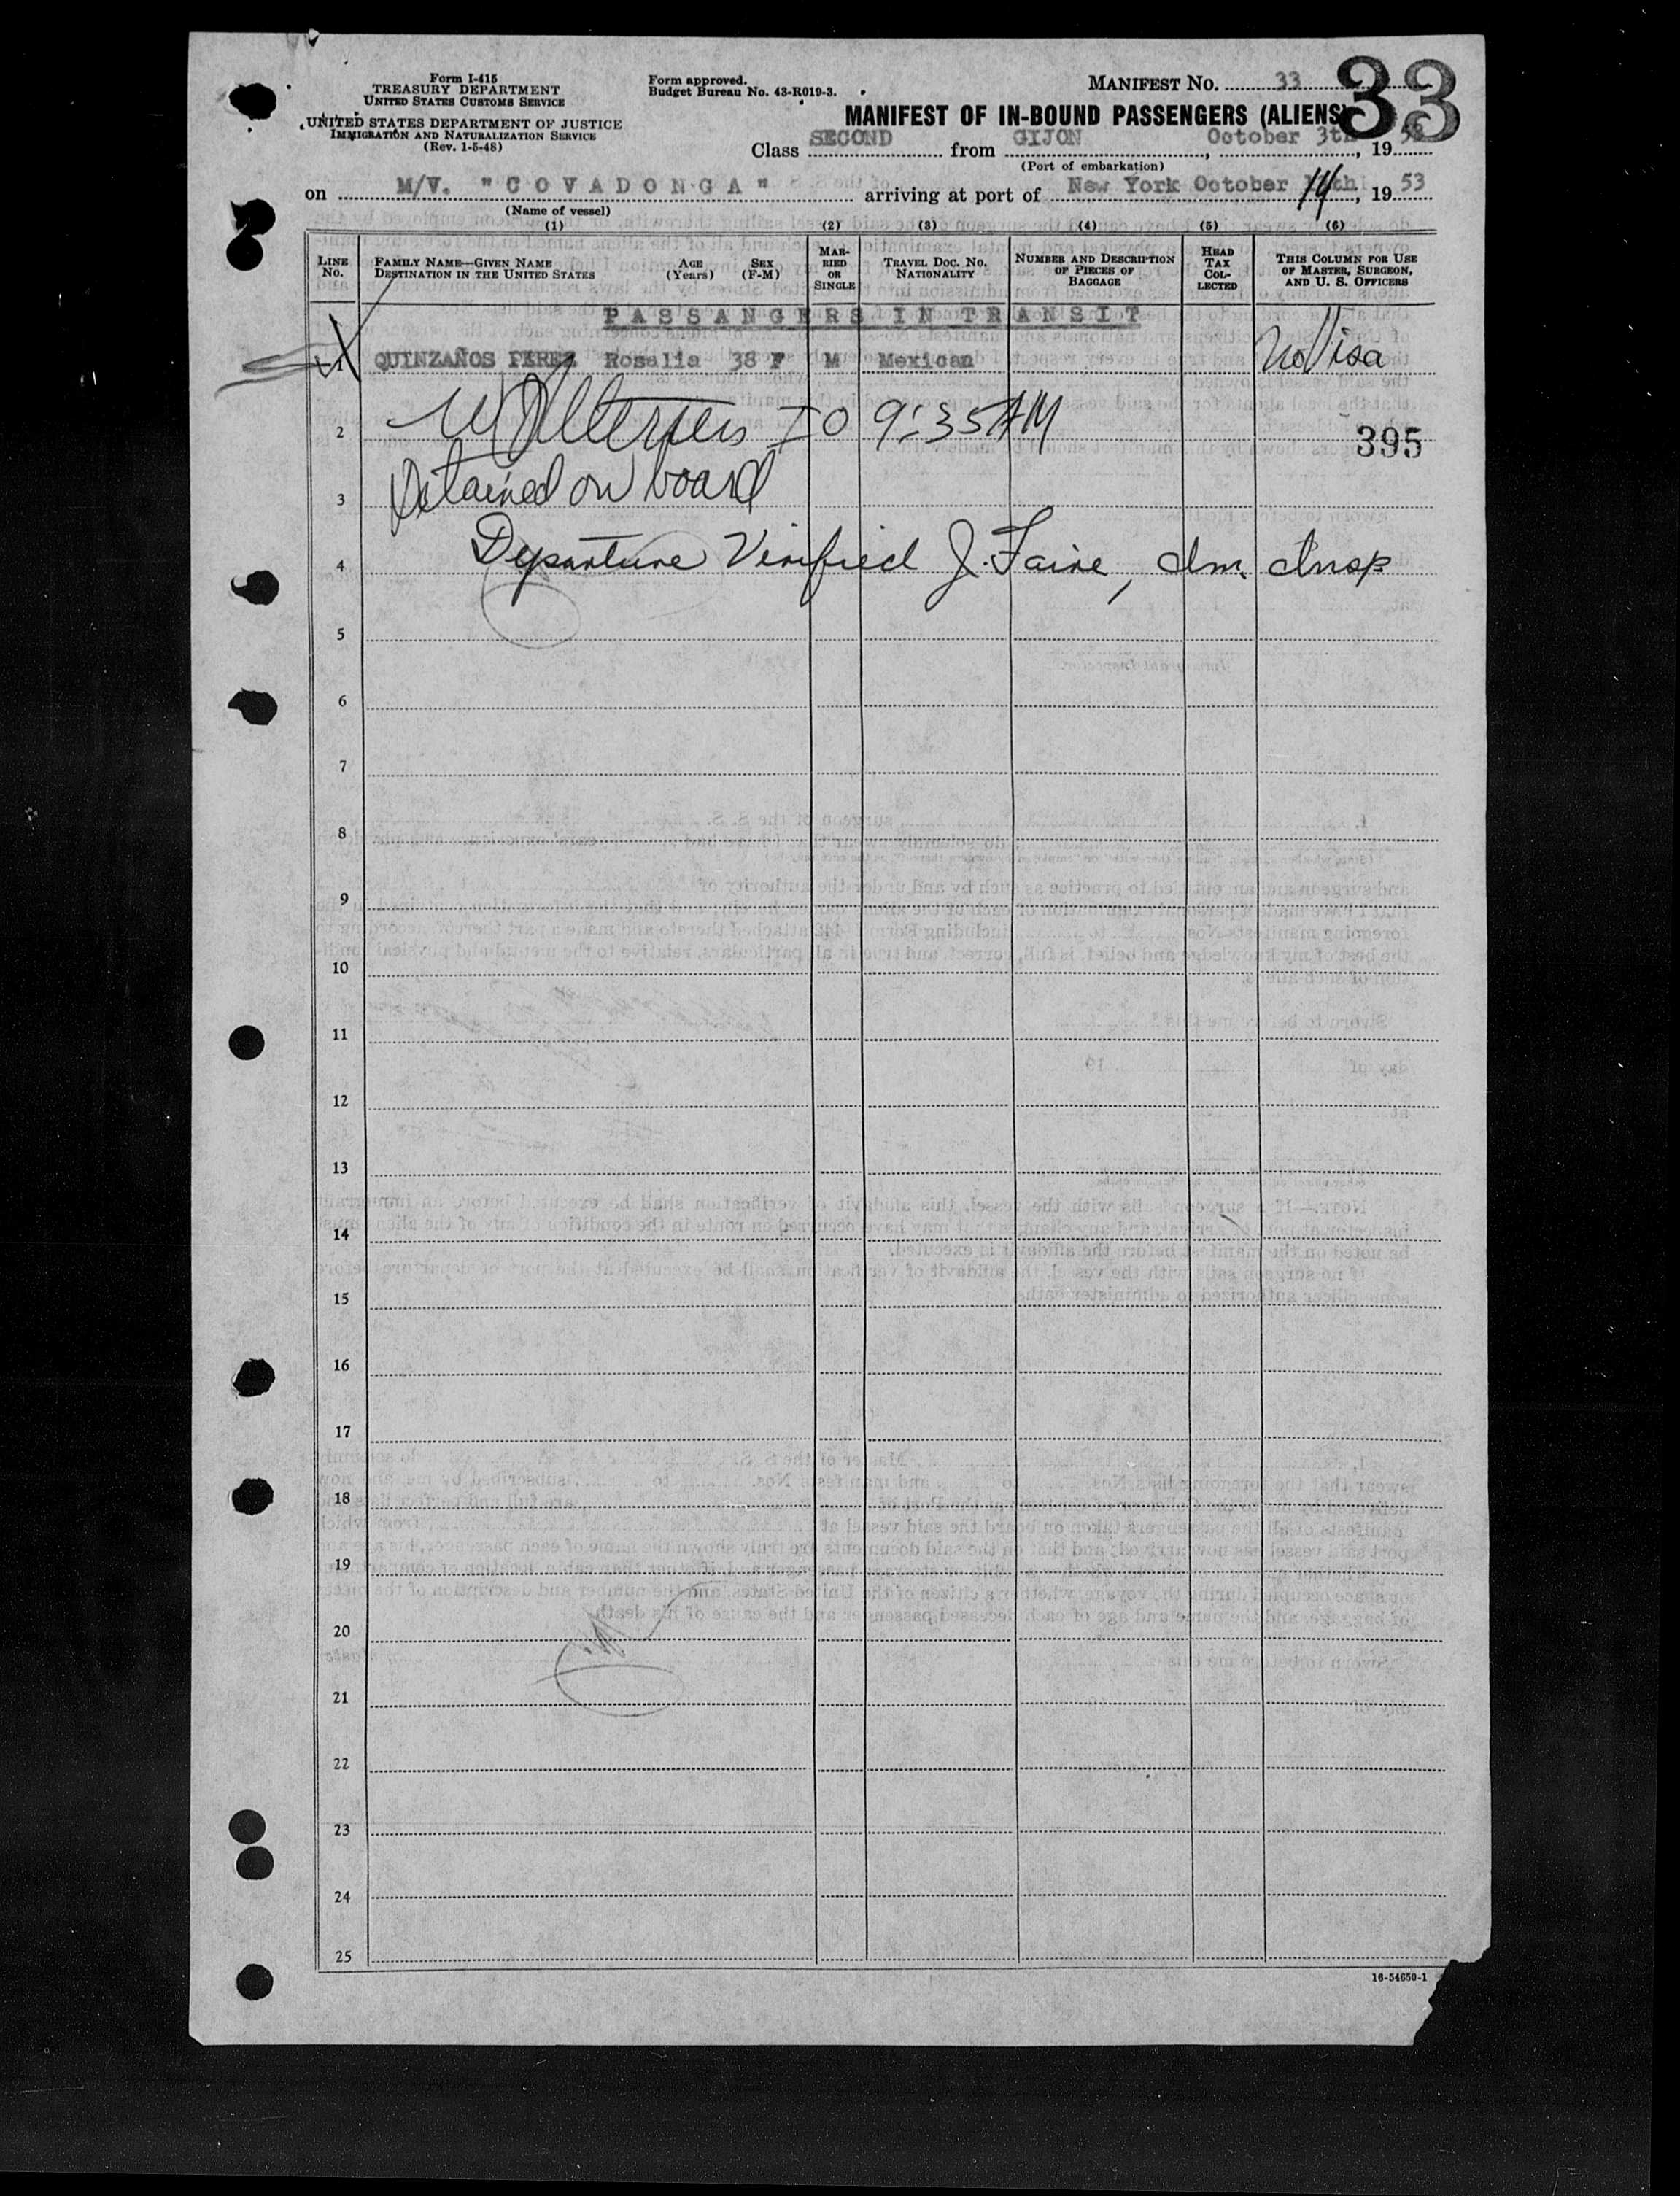 Form I-415
TREASURY DEPARTMENT
UNITED STATES CUSTOMS SERVICE
UNITED STATES DEPARTMENT OF JUSTICE
IMMIGRATION AND NATURALIZATION SERVICE
(Rev. 1-5-48)
Form approved.
Budget Bureau No. 43-R019-3.
MANIFEST NO. 33
33
MANIFEST OF IN-BOUND PASSENGERS (ALIENS)
Class SECOND from GIJON, October 3th, 19 53
(Port of embarkation)
on M/V. "COVADONGA" arriving at port of New York October 14th, 19 53
(Name of vessel)
(1) (2) (3) (4) (5) (6)
LINE No. FAMILY NAME—GIVEN NAME DESTINATION IN THE UNITED STATES AGE (Years) SEX (F-M) MARRIED OR SINGLE TRAVEL DOC. NO. NATIONALITY NUMBER AND DESCRIPTION OF PIECES OF BAGGAGE HEAD TAX COLLECTED THIS COLUMN FOR USE OF MASTER, SURGEON, AND U. S. OFFICERS
PASSANGERS IN TRANSIT
1 QUINZAÑOS PEREZ Rosalia 38 F M Mexican No Visa
2 I O 9:35 AM 395
3 Detained on board
4 Departure Verified J. Faire, Im. Insp
5
6
7
8
9
10
11
12
13
14
15
16
17
18
19
20
21
22
23
24
25
16-54650-1